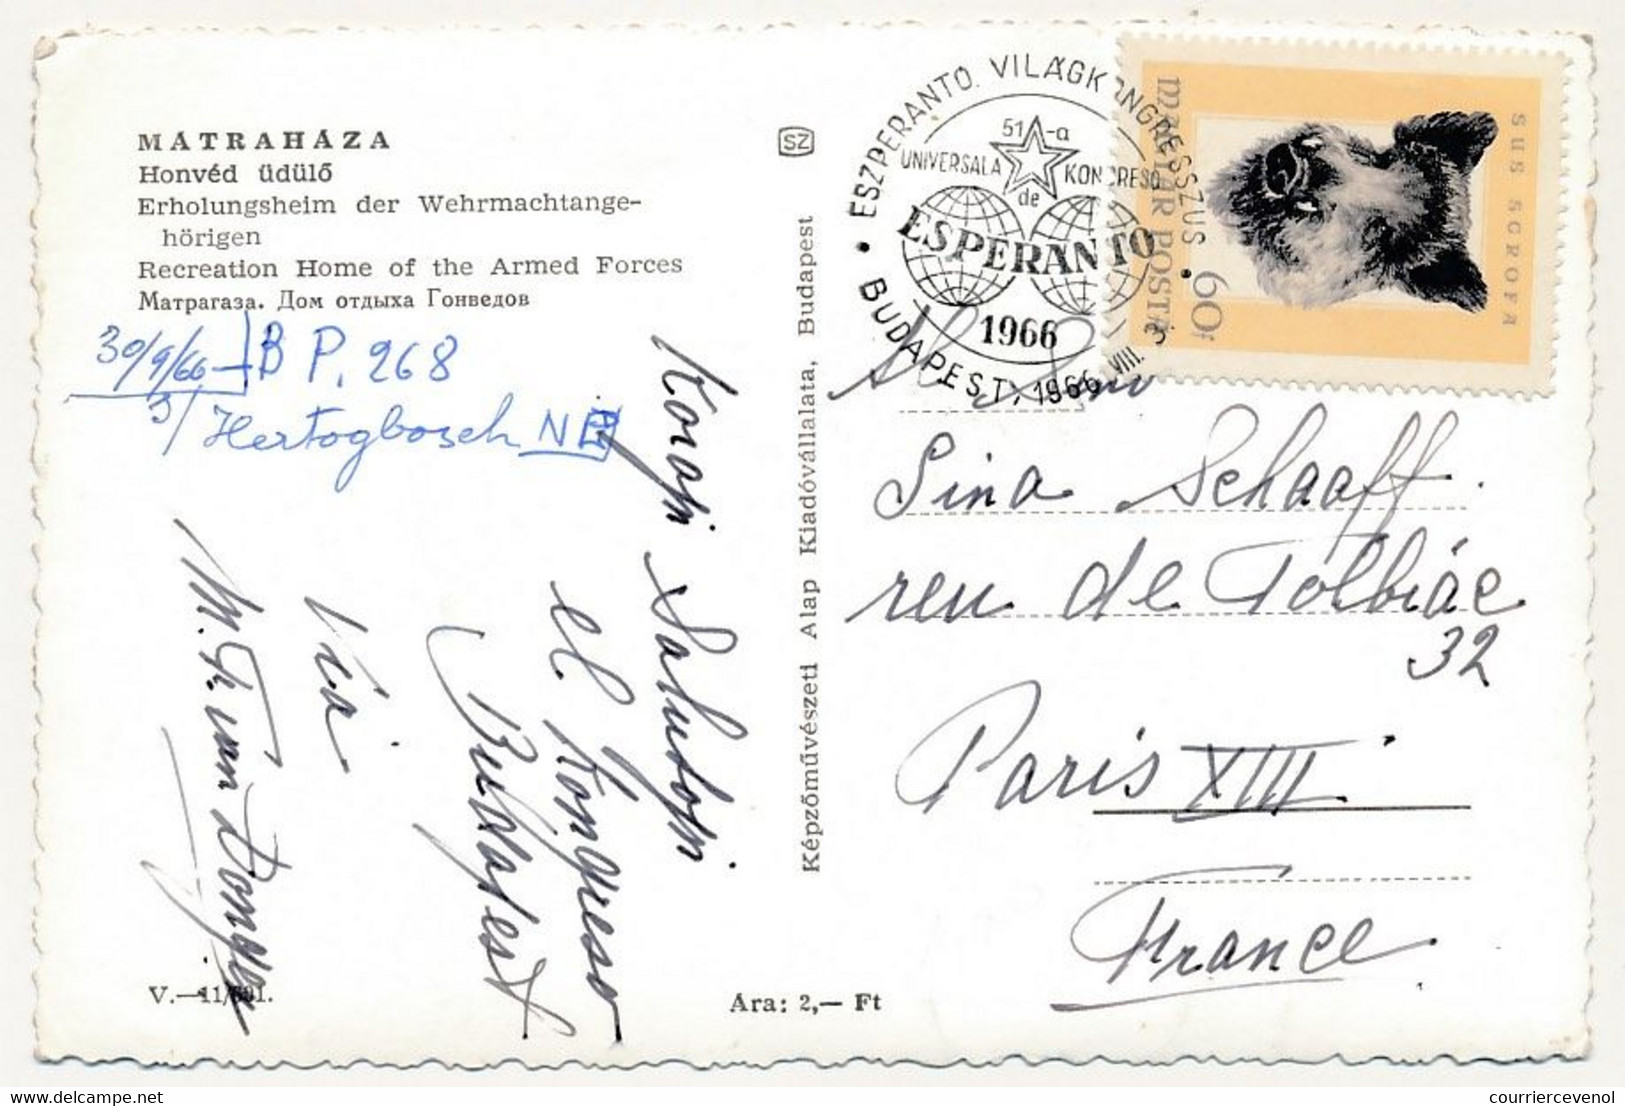 MÁTRAHÁZA
Honvéd üdülő
Erholungsheim der Wehrmachtange-
hörigen
Recreation Home of the Armed Forces
Матрагаза. Дом отдыха Гонведов
30/9/66 B P. 268
Hertogbosch
Korajn Salutojn
el Kongreso
Budapest
Via
van Dongen
V.—11/
Ara: 2,— Ft
Képzőművészeti Alap Kiadóvállalata, Budapest
SZ
• ESZPERANTO. VILÁGKONGRESSZUS •
51-a
UNIVERSALA KONGRESO
de
ESPERANTO
1966
BUDAPEST, 1966. VIII.
MAGYAR POSTA
60f
SUS SCROFA
Sina Schaaff
reu de Tolbiác
32
Paris XIII
France
courriercevenol